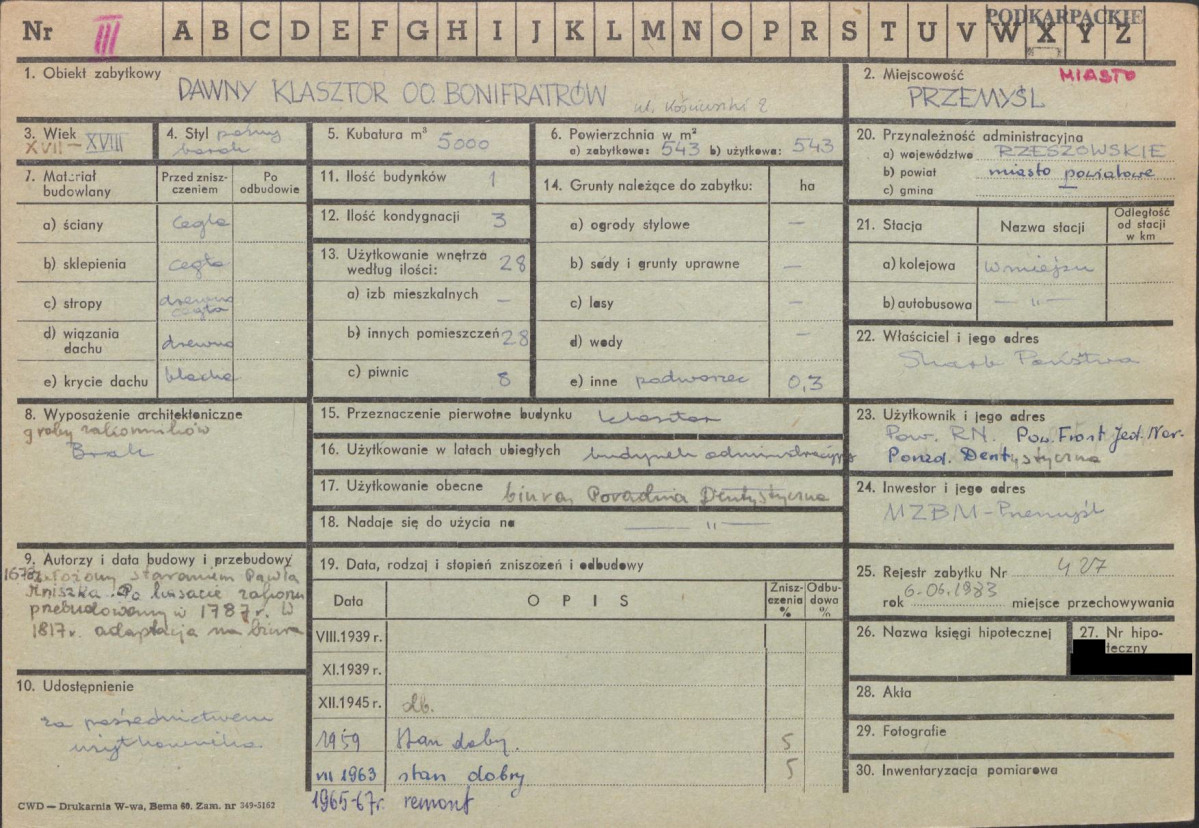 Nr III A B C D E F G H I J K L M N O P R S T U V W X Y Z
PODKARPACKIE
1. Obiekt zabytkowy
DAWNY KLASZTOR OO. BONIFRATRÓW
2. Miejscowość MIASTO
PRZEMYŚL
3. Wiek
XVII – XVIII
4. Styl późny
barok
5. Kubatura m³
5000
6. Powierzchnia w m²
a) zabytkowa: 543 b) użytkowa: 543
20. Przynależność administracyjna
a) województwo RZESZOWSKIE
b) powiat miasto powiatowe
c) gmina
7. Materiał budowlany
Przed zniszczeniem
Po odbudowie
a) ściany cegła
b) sklepienia cegła
c) stropy drewno
cegła
d) wiązania dachu drewno
e) krycie dachu blacha
11. Ilość budynków 1
12. Ilość kondygnacji 3
13. Użytkowanie wnętrza
według ilości: 28
a) izb mieszkalnych –
b) innych pomieszczeń 28
c) piwnic 8
14. Grunty należące do zabytku: ha
a) ogrody stylowe –
b) sady i grunty uprawne –
c) lasy –
d) wody –
e) inne podworzec 0,3
21. Stacja
Nazwa stacji
Odległość
od stacji
w km
a) kolejowa w miejscu
b) autobusowa – " –
22. Właściciel i jego adres
Skarb Państwa
8. Wyposażenie architektoniczne
groby zakonników
Brak
15. Przeznaczenie pierwotne budynku klasztor
16. Użytkowanie w latach ubiegłych budynek administracyjny
17. Użytkowanie obecne biura, Poradnia Dentystyczna
18. Nadaje się do użycia na – " –
23. Użytkownik i jego adres
Pow. RN. Pow. Front Jed. Nar.
Porad. Dentystyczna
24. Inwestor i jego adres
MZBM – Przemyśl
9. Autorzy i data budowy i przebudowy
1678r. założony staraniem Pawła
Mniszka. Po kasacie zakonu
przebudowany w 1787r. W
1817r. adaptacja na biura
10. Udostępnienie
za pośrednictwem
użytkownika
19. Data, rodzaj i stopień zniszczeń i odbudowy
Data
OPIS
Zniszczenia %
Odbudowa %
VIII.1939 r.
XI.1939 r.
XII.1945 r. db.
1959 stan dobry. 5
VII 1963 stan dobry 5
1965-67r. remont
25. Rejestr zabytku Nr 427
6.06.1983
rok miejsce przechowywania
26. Nazwa księgi hipotecznej
27. Nr hipoteczny
28. Akta
29. Fotografie
30. Inwentaryzacja pomiarowa
CWD — Drukarnia W-wa, Bema 60. Zam. nr 349-5162